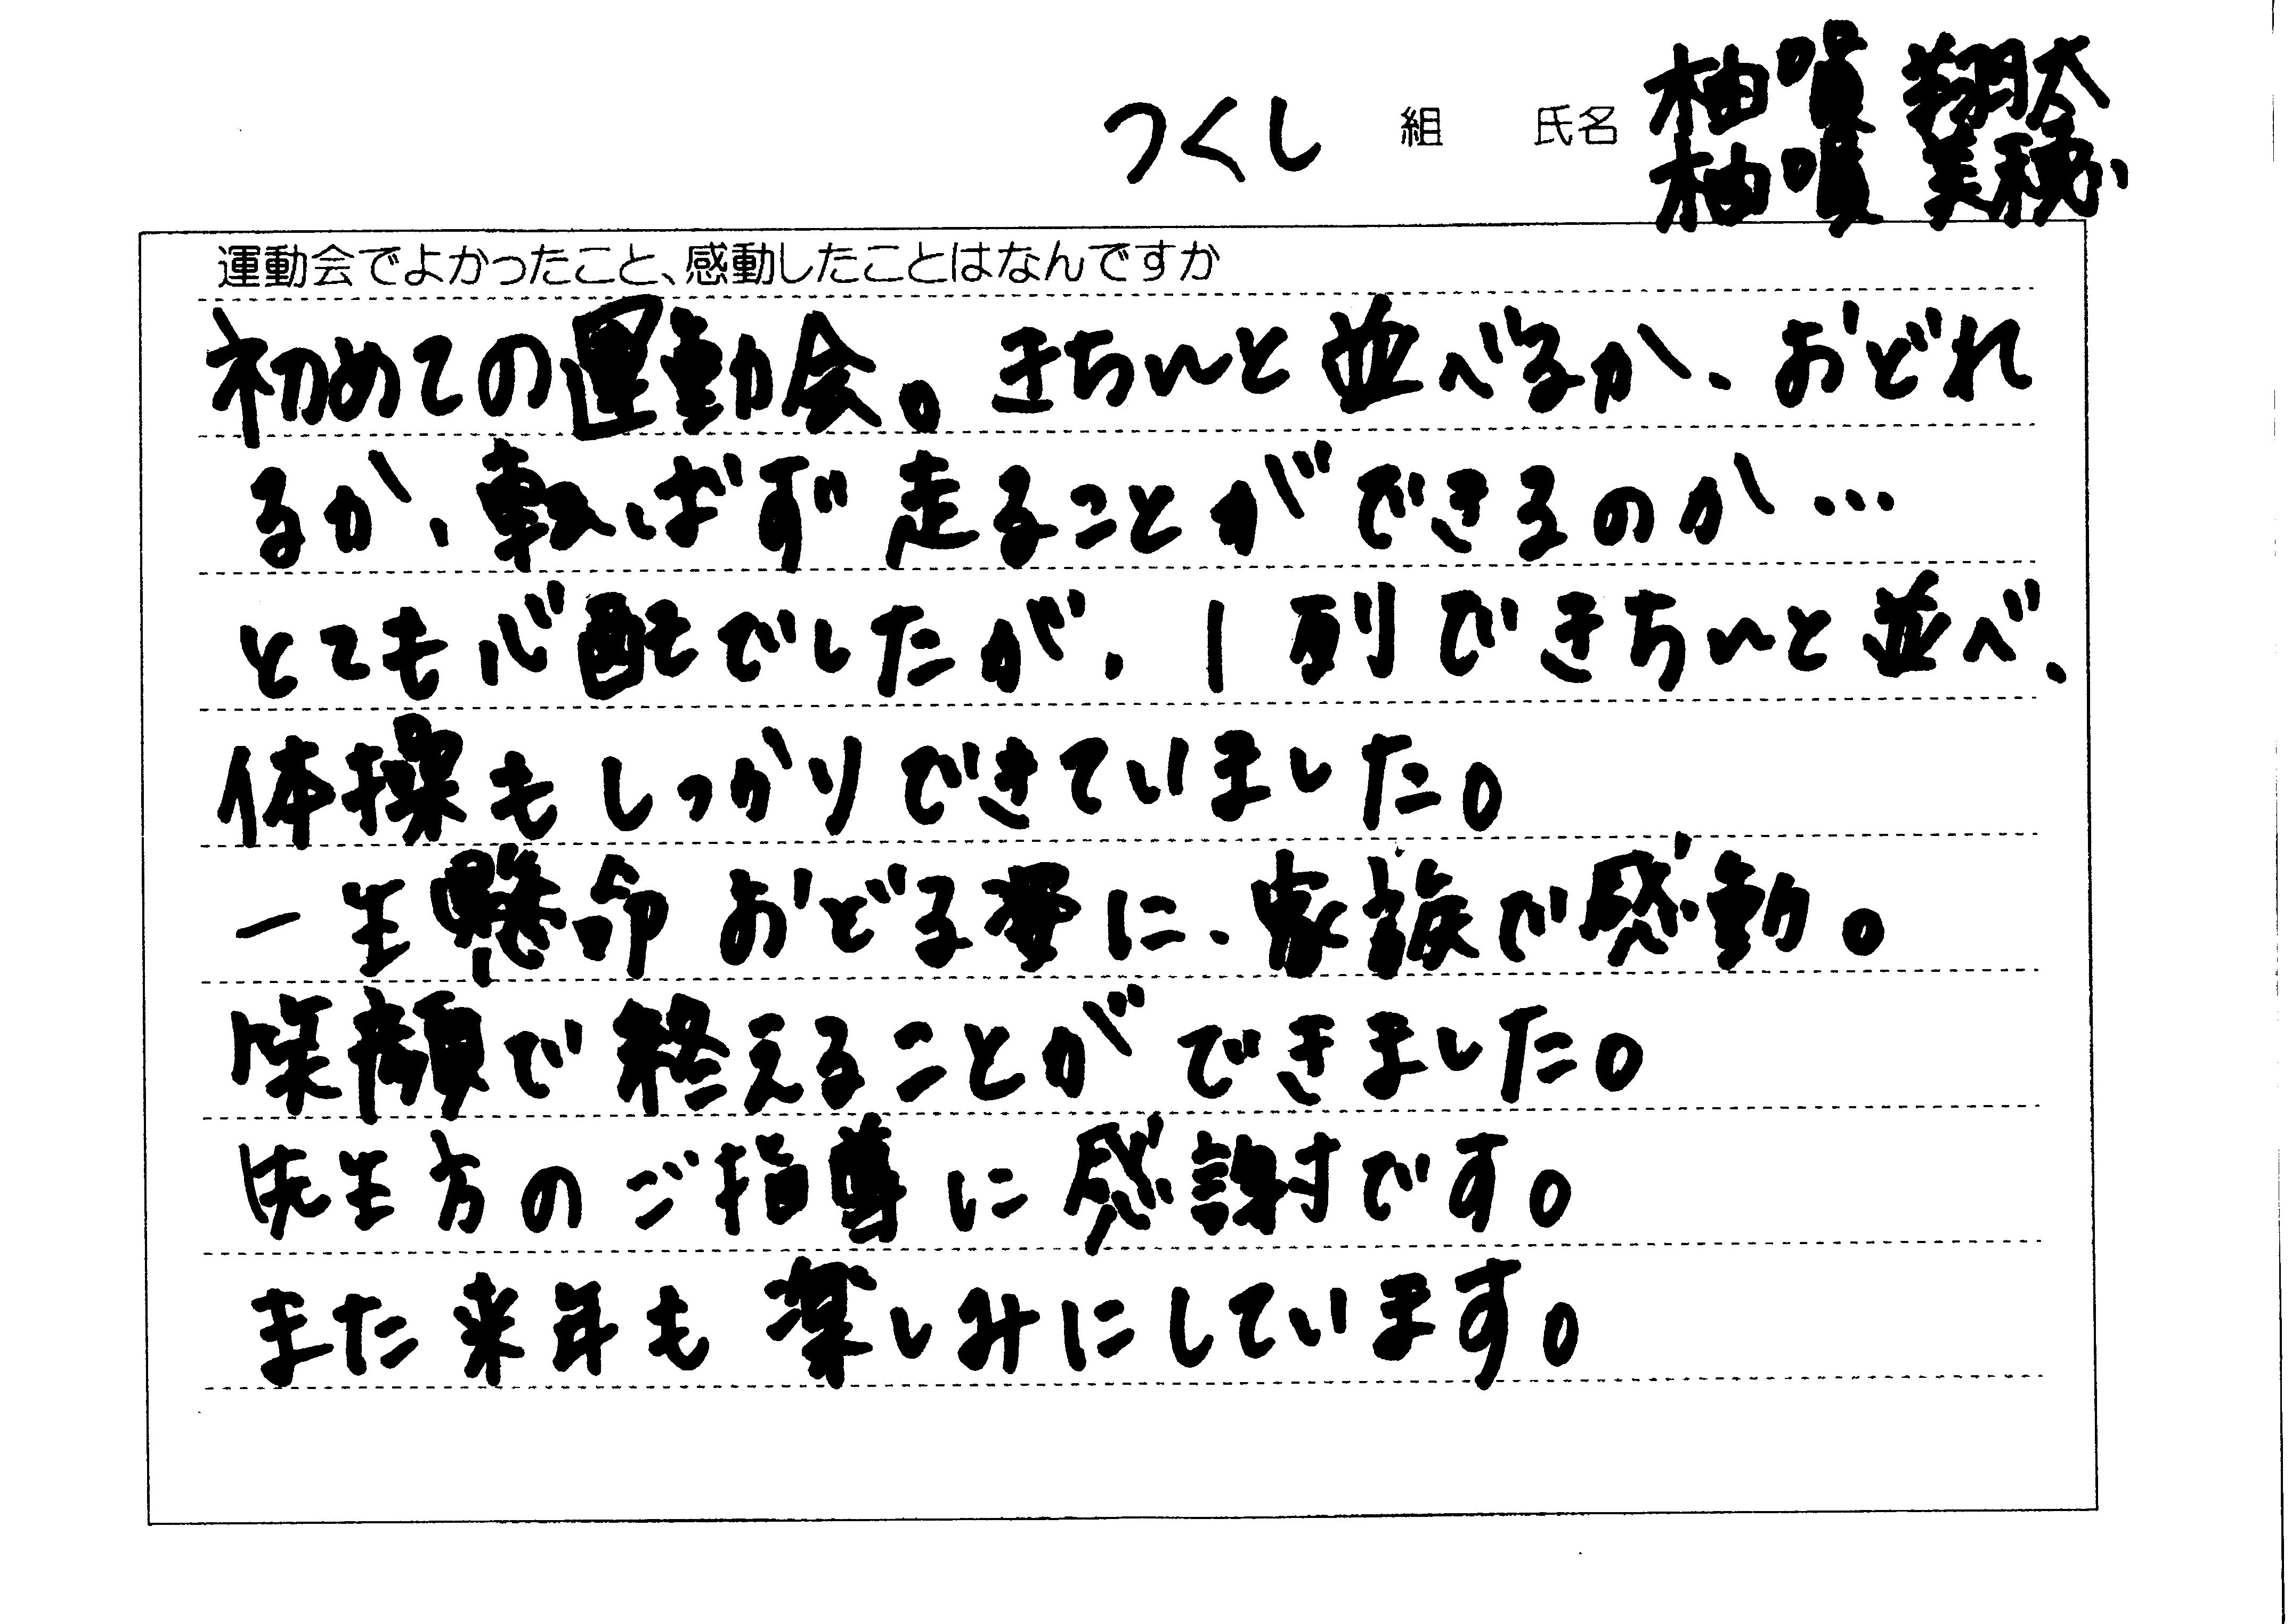 つくし 組 氏名 柚 翔太
柚 美
運動会でよかったこと、感動したことはなんですか
初めての運動会。きちんと並べるか、おどれ
るか、転ばず走ることができるのか…
とても心配でしたが、1列できちんと並べ、
体操もしっかりできていました。
一生懸命おどる姿に、家族で感動。
笑顔で終えることができました。
先生方のご指導に感謝です。
また来年も楽しみにしています。